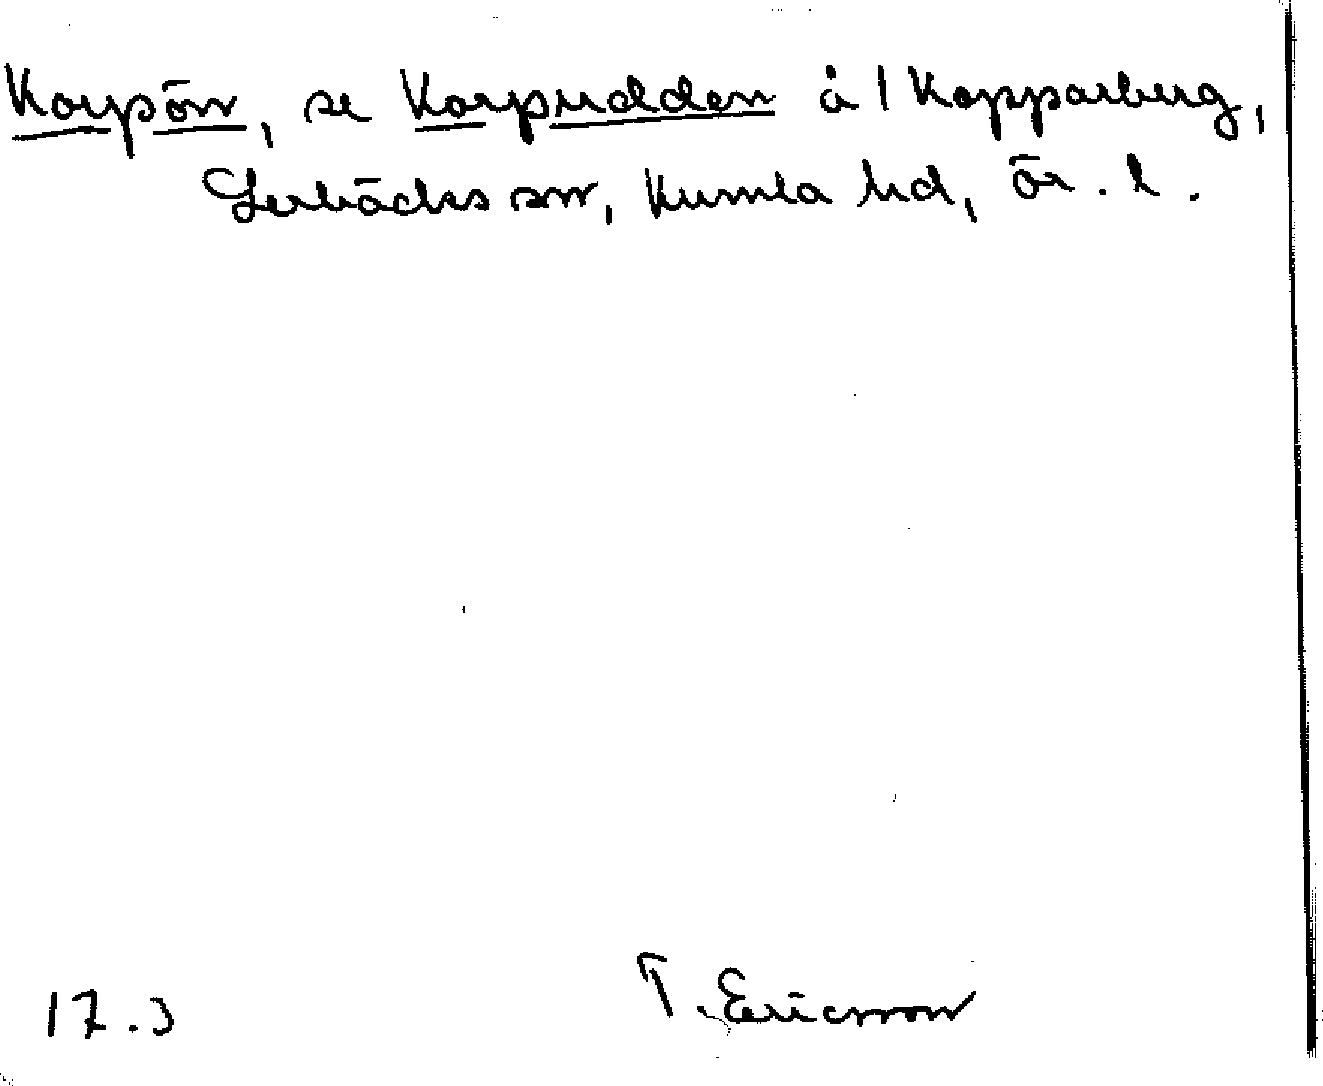 Korpön, se Korpudden å 1 Kopparberg,
Lerbäcks sn, Kumla hd, Ör. l.
17.J
T. Ericsson